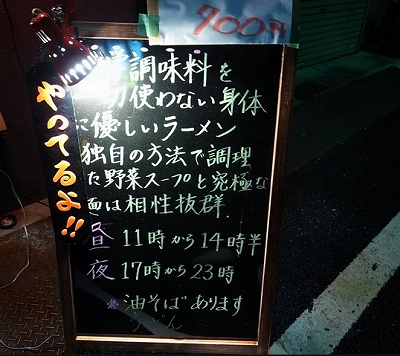 700円
調味料を
切使わない身体
に優しいラーメン
独自の方法で調理
た野菜スープと究極な
は相性抜群
昼 11時から14時半
夜 17時から23時
油そばあります
やってるよ!!